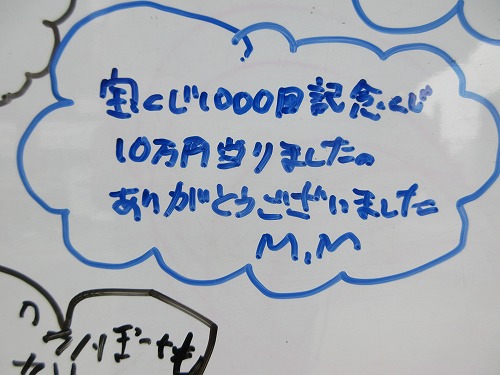 宝くじ1000回記念くじ
10万円当りました。
ありがとうございました
M.M